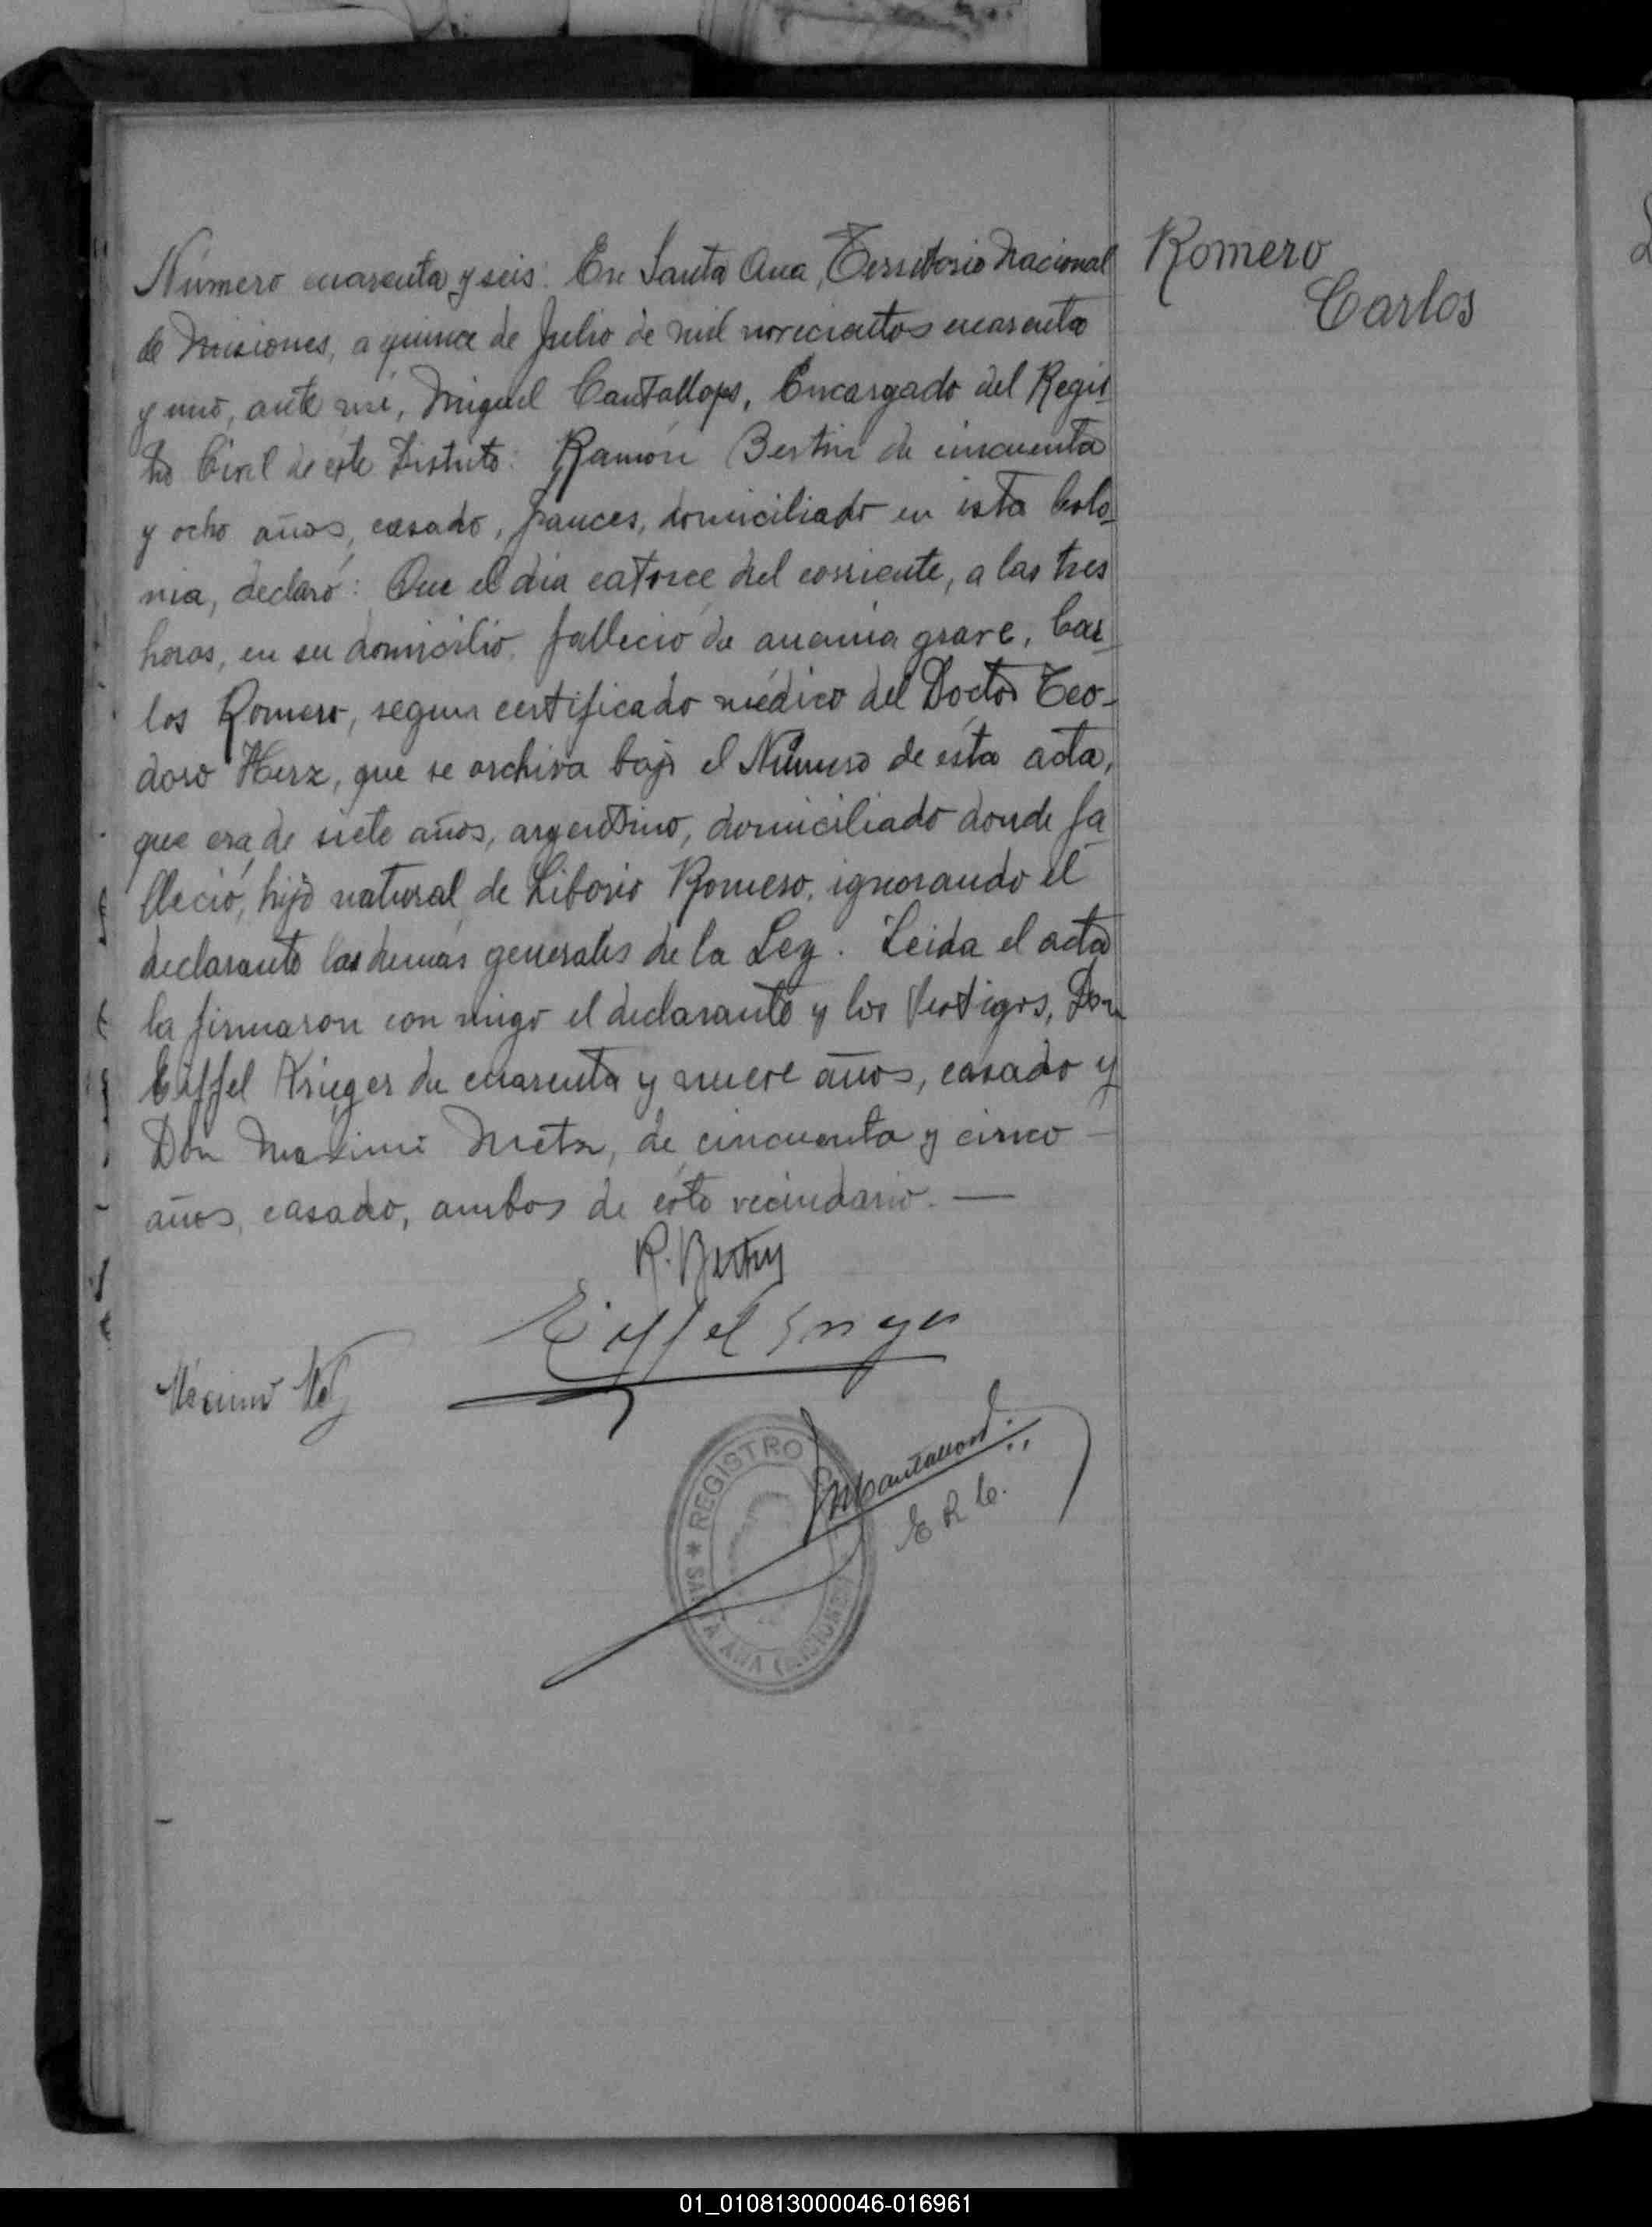 Romero
Carlos
Número cuarenta y seis: En Santa Ana, Territorio Nacional
de Misiones, a quince de Julio de mil novecientos cuarenta
y uno, ante mí, Miguel Cantallops, Encargado del Regis-
tro Civil de este Distrito: Ramón Bertin de cincuenta
y ocho años, casado, frances, domiciliado en esta Colo-
nia, declaró: Que el día catorce del corriente, a las tres
horas, en su domicilio, falleció de anemia grave, Car-
los Romero, segun certificado médico del Doctor Teo-
doro Herz, que se archiva bajo el Número de esta acta,
que era de siete años, argentino, domiciliado donde fa-
lleció, hijo natural de Liborio Romero, ignorando el
declarante las demás generales de la Ley. Leida el acta
la firmaron con migo el declarante y los testigos, Don
Eiffel Krieger de cuarenta y nueve años, casado y
Don Maximi Metz, de cincuenta y cinco
años, casado, ambos de este vecindario. —
R. Bertin
Eiffel
M Cantallops
E R C.
REGISTRO
SANTA ANA (MISIONES)
01_010813000046-016961